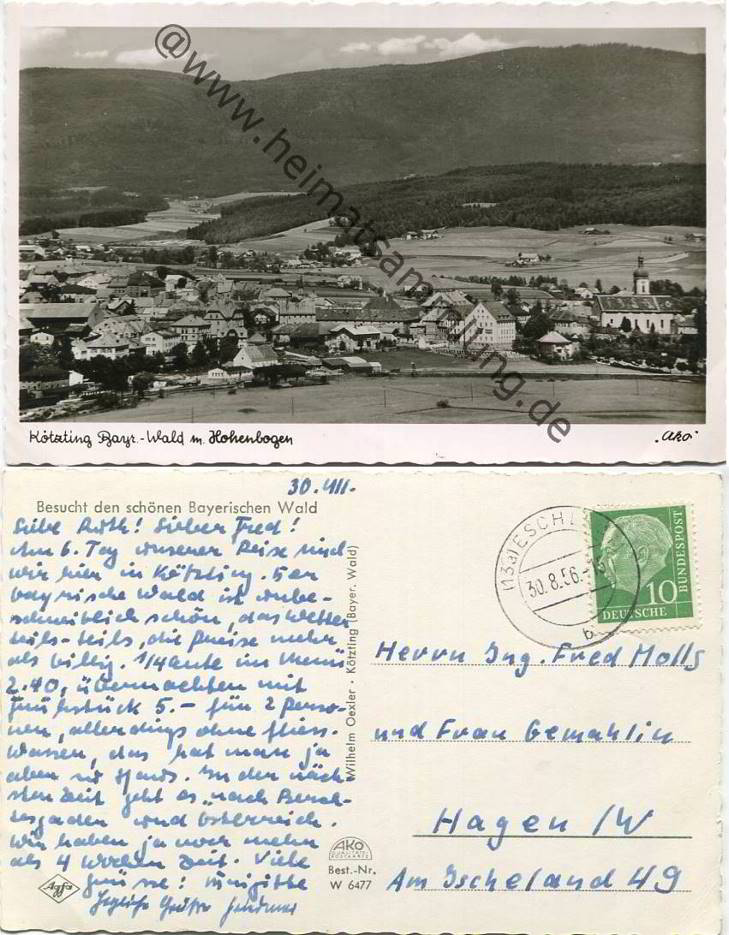 @www.heimatsammlung.de
Kötzting Bayr.-Wald m. Hohenbogen
"Ako"
30.VIII.
Besucht den schönen Bayerischen Wald
Liebe Ruth! Lieber Fred!
Am 6. Tag unserer Reise sind
wir hier in Kötzting. Der
bayrische Wald ist unbe-
schreiblich schön, das Wetter
teils-teils, die Preise mehr
als billig. 1/4 Ente im Menü
2.40, übernachten mit
Frühstück 5.- für 2 Perso-
nen, allerdings ohne fliess.
Wasser, das hat man ja
aber zu Haus. In der näch-
sten Zeit geht es nach Berch-
tesgaden und Österreich.
Wir haben ja noch mehr
als 4 Wochen Zeit. Viele
Grüsse!
Grüße
Wilhelm Oexler · Kötzting (Bayer. Wald)
AKO
QUALITÄTS
POSTKARTE
Best.-Nr.
W 6477
Agfa
(13a) ESCHL
30.8.56.
b
10
DEUTSCHE
BUNDESPOST
Herrn Ing. Fred Molls
und Frau Gemahlin
Hagen /W
Am Ischeland 49